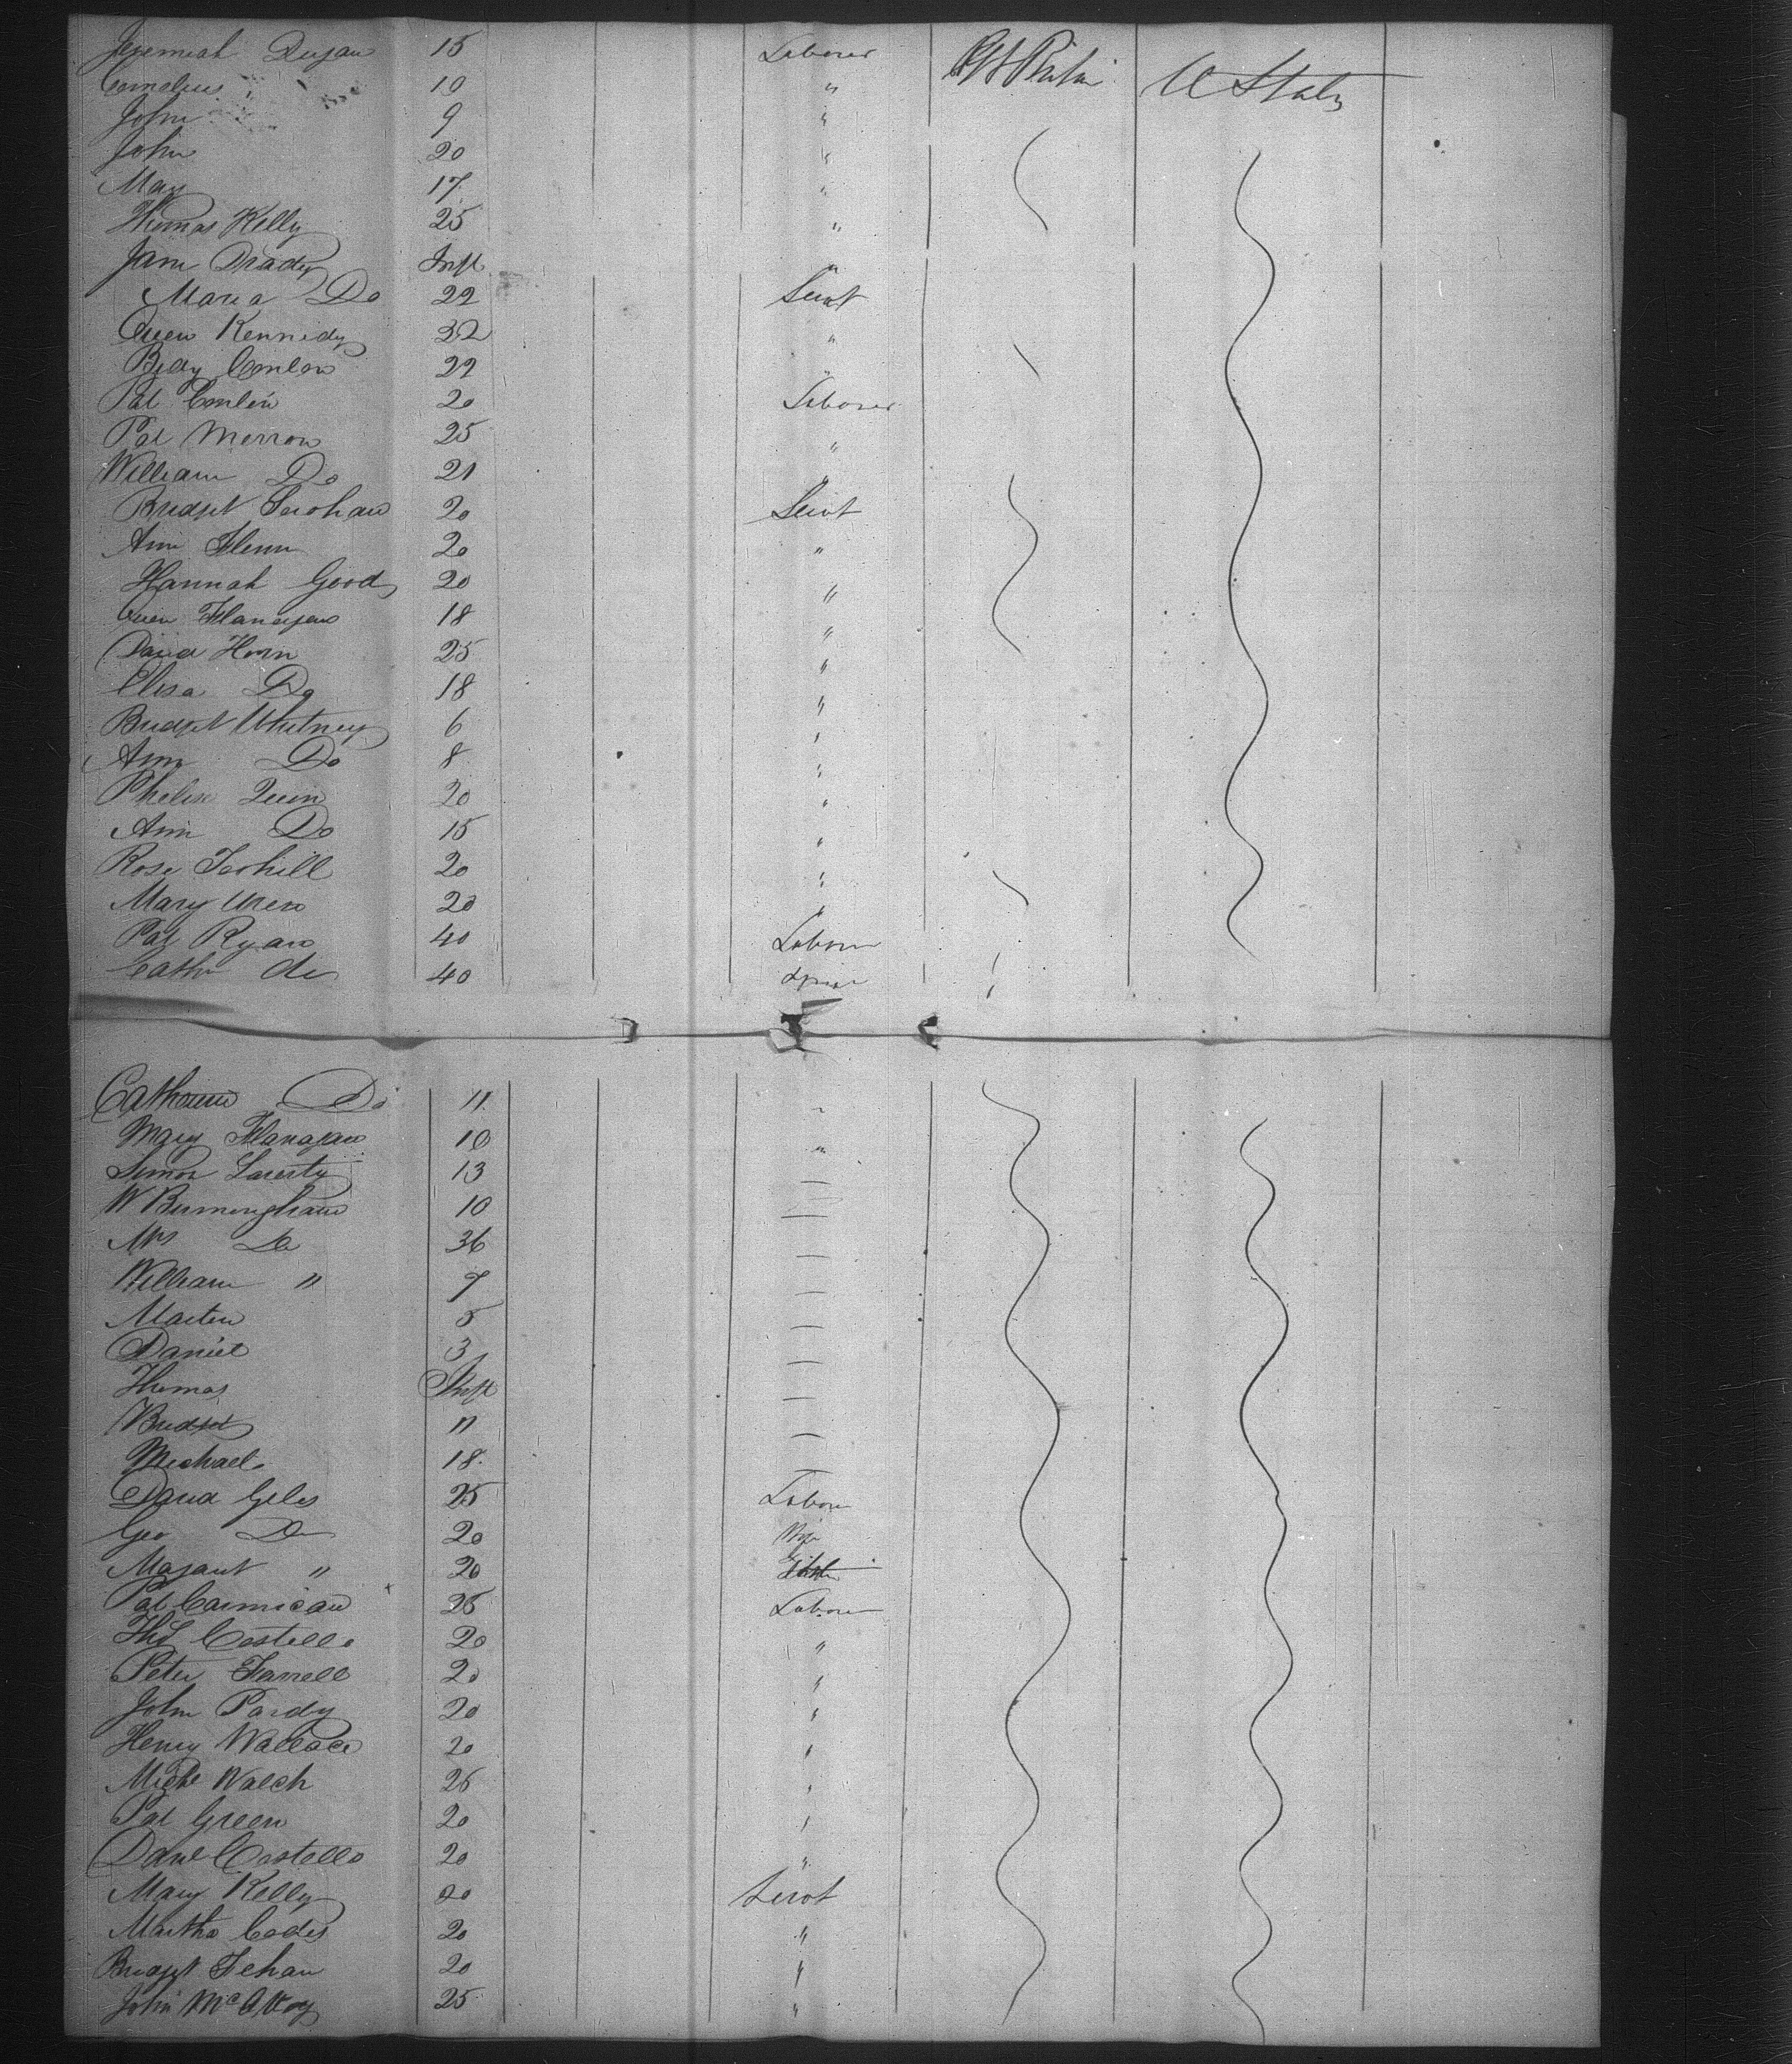 Jeremiah Dugan 15 Laborer Gt Britain U States
Cornelius " 10 "
John 9 "
John 20 "
May 17 "
Thomas Kelly 25 "
Jane Brady Inft "
Maria Do 22 Servt
Owen Kennedy 32 "
Bidy Conlon 22 "
Pat Conlin 20 Laborer
Pat Morrow 25 "
William Do 21 "
Bridget 20 Servt
Ann Flenn 20 "
Hannah Good 20 "
Owen Flanagan 18 "
David Horn 25 "
Elisa Do 18 "
Bridget Whitney 6 "
Ann Do 8 "
Phelix Quin 20 "
Ann Do 15 "
Rose Terhill 20 "
Mary 20 "
Pat Ryan 40 Labour
Cathn do 40
Catherine Do 11 "
Mary Flanagan 10 "
Simon Laverty 13 —
W Burmingham 10 —
Mrs Do 36 —
William " 7 —
Martin 5 —
Daniel 3 —
Thomas Inft —
Bridget 11 —
Michael 18 —
David Giles 25 Labour
Geo Do 20
Magaret " 20
Pat Carmican 25 Labour
Thos Costello 20 "
Peter Farrell 20 "
John Pardy 20 "
Henry Wallace 20 "
Michl Walch 26 "
Pat Green 20 "
Danl Costello 20 "
Mary Kelly 20 Servt
Martha Codes 20 "
Bridget Fehan 20 "
John McAvoy 25 "